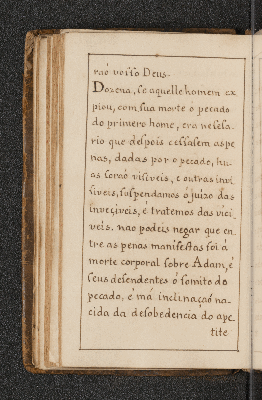 raõ vosso Deus.
Dozena, se aquelle homem ex
piou, com sua morte o pecado
do primero home, era necesa-
rio que despois cessasem as pe
nas, dadas por o pecado, hu-
as seraõ visiveis, e outras invi
siveis, suspendamos o juizo das
inveciveis, e tratemos das vici
veis. naõ podeis negar que en
tre as penas manifestas foi á
morte corporal sobre Adam, é
seus desendentes ó fomito do
pecado, é má inclinaçaõ na-
cida da desobedencia do ape
tite